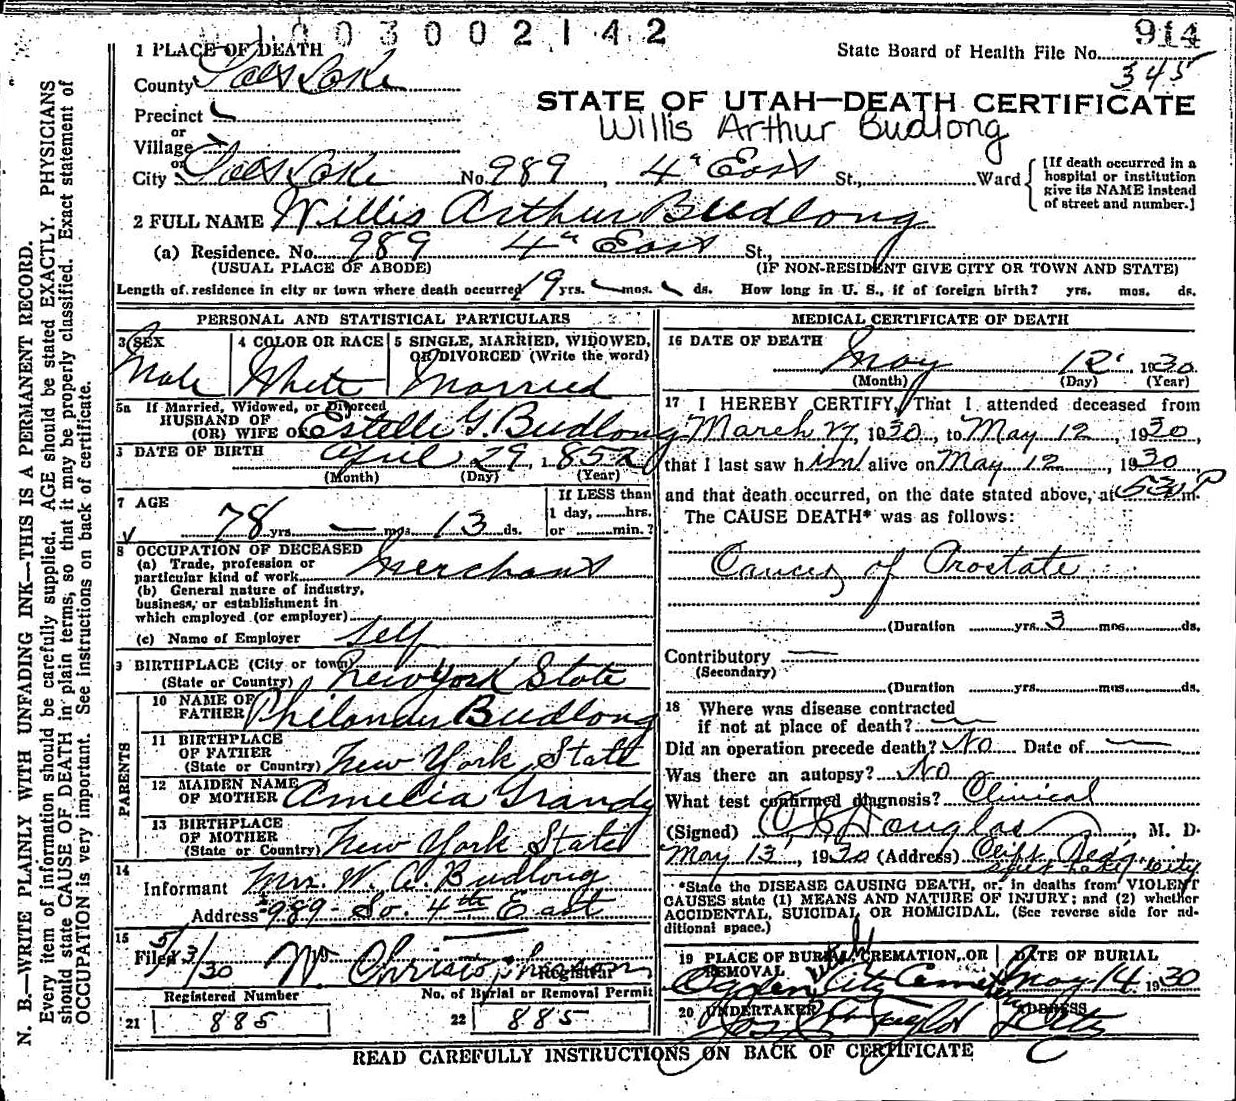 1003002142
914
1 PLACE OF DEATH
State Board of Health File No.
345
County Salt Lake
STATE OF UTAH—DEATH CERTIFICATE
Precinct
Willis Arthur Budlong
or
Village
or
City Salt Lake No. 989, 4" East St., Ward
[If death occurred in a hospital or institution give its NAME instead of street and number.]
2 FULL NAME Willis Arthur Budlong
(a) Residence. No. 989 4" East St.,
(USUAL PLACE OF ABODE) (IF NON-RESIDENT GIVE CITY OR TOWN AND STATE)
Length of residence in city or town where death occurred 19 yrs. mos. ds. How long in U. S., if of foreign birth? yrs. mos. ds.
PERSONAL AND STATISTICAL PARTICULARS
3 SEX 4 COLOR OR RACE 5 SINGLE, MARRIED, WIDOWED, OR DIVORCED (Write the word)
Male White Married
5a If Married, Widowed, or Divorced
HUSBAND OF
(OR) WIFE OF Estelle G. Budlong
DATE OF BIRTH April 29, 1852
(Month) (Day) (Year)
7 AGE 78 yrs. — mos. 13 ds.
If LESS than 1 day, hrs. or min.?
8 OCCUPATION OF DECEASED
(a) Trade, profession or particular kind of work Merchant
(b) General nature of industry, business, or establishment in which employed (or employer)
(c) Name of Employer Self
9 BIRTHPLACE (City or town)
(State or Country) New York State
PARENTS
10 NAME OF FATHER Philander Budlong
11 BIRTHPLACE OF FATHER
(State or Country) New York State
12 MAIDEN NAME OF MOTHER Amelia Grandy
13 BIRTHPLACE OF MOTHER
(State or Country) New York State
14
Informant Mrs. W. A. Budlong
Address 989 So. 4th East
15
Filed 5/13/30 Registrar
Registered Number No. of Burial or Removal Permit
21 885 22 885
MEDICAL CERTIFICATE OF DEATH
16 DATE OF DEATH
May 12 1930
(Month) (Day) (Year)
17 I HEREBY CERTIFY, That I attended deceased from
March 27, 1930, to May 12, 1930,
that I last saw him alive on May 12, 1930
and that death occurred, on the date stated above, at 530P m.
The CAUSE DEATH* was as follows:
Cancer of Prostate
(Duration yrs. 3 mos. ds.
Contributory —
(Secondary)
(Duration yrs. mos. ds.
18 Where was disease contracted
if not at place of death? —
Did an operation precede death? No Date of —
Was there an autopsy? No
What test confirmed diagnosis? Clinical
(Signed) Douglas, M. D.
May 13, 1930 (Address) Clift Bldg.
Salt Lake City
*State the DISEASE CAUSING DEATH, or, in deaths from VIOLENT
CAUSES state (1) MEANS AND NATURE OF INJURY; and (2) whether
ACCIDENTAL, SUICIDAL OR HOMICIDAL. (See reverse side for additional space.)
19 PLACE OF BURIAL, CREMATION, OR REMOVAL DATE OF BURIAL
Ogden City Cemetery May 14. 1930
20 UNDERTAKER ADDRESS
City
READ CAREFULLY INSTRUCTIONS ON BACK OF CERTIFICATE
N. B.—WRITE PLAINLY WITH UNFADING INK—THIS IS A PERMANENT RECORD.
Every item of information should be carefully supplied. AGE should be stated EXACTLY. PHYSICIANS
should state CAUSE OF DEATH in plain terms, so that it may be properly classified. Exact statement of
OCCUPATION is very important. See instructions on back of certificate.